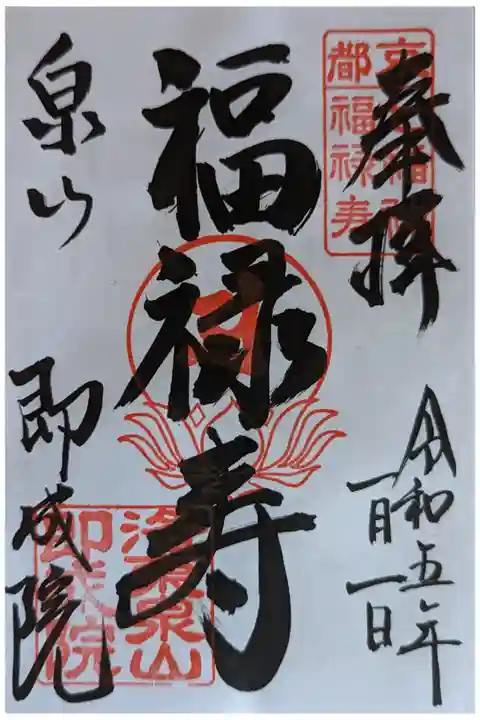 奉拝
令和五年
一月一日
福禄寿
泉山
即成院
京都
七福神
福禄寿
泉涌寺山内
即成院